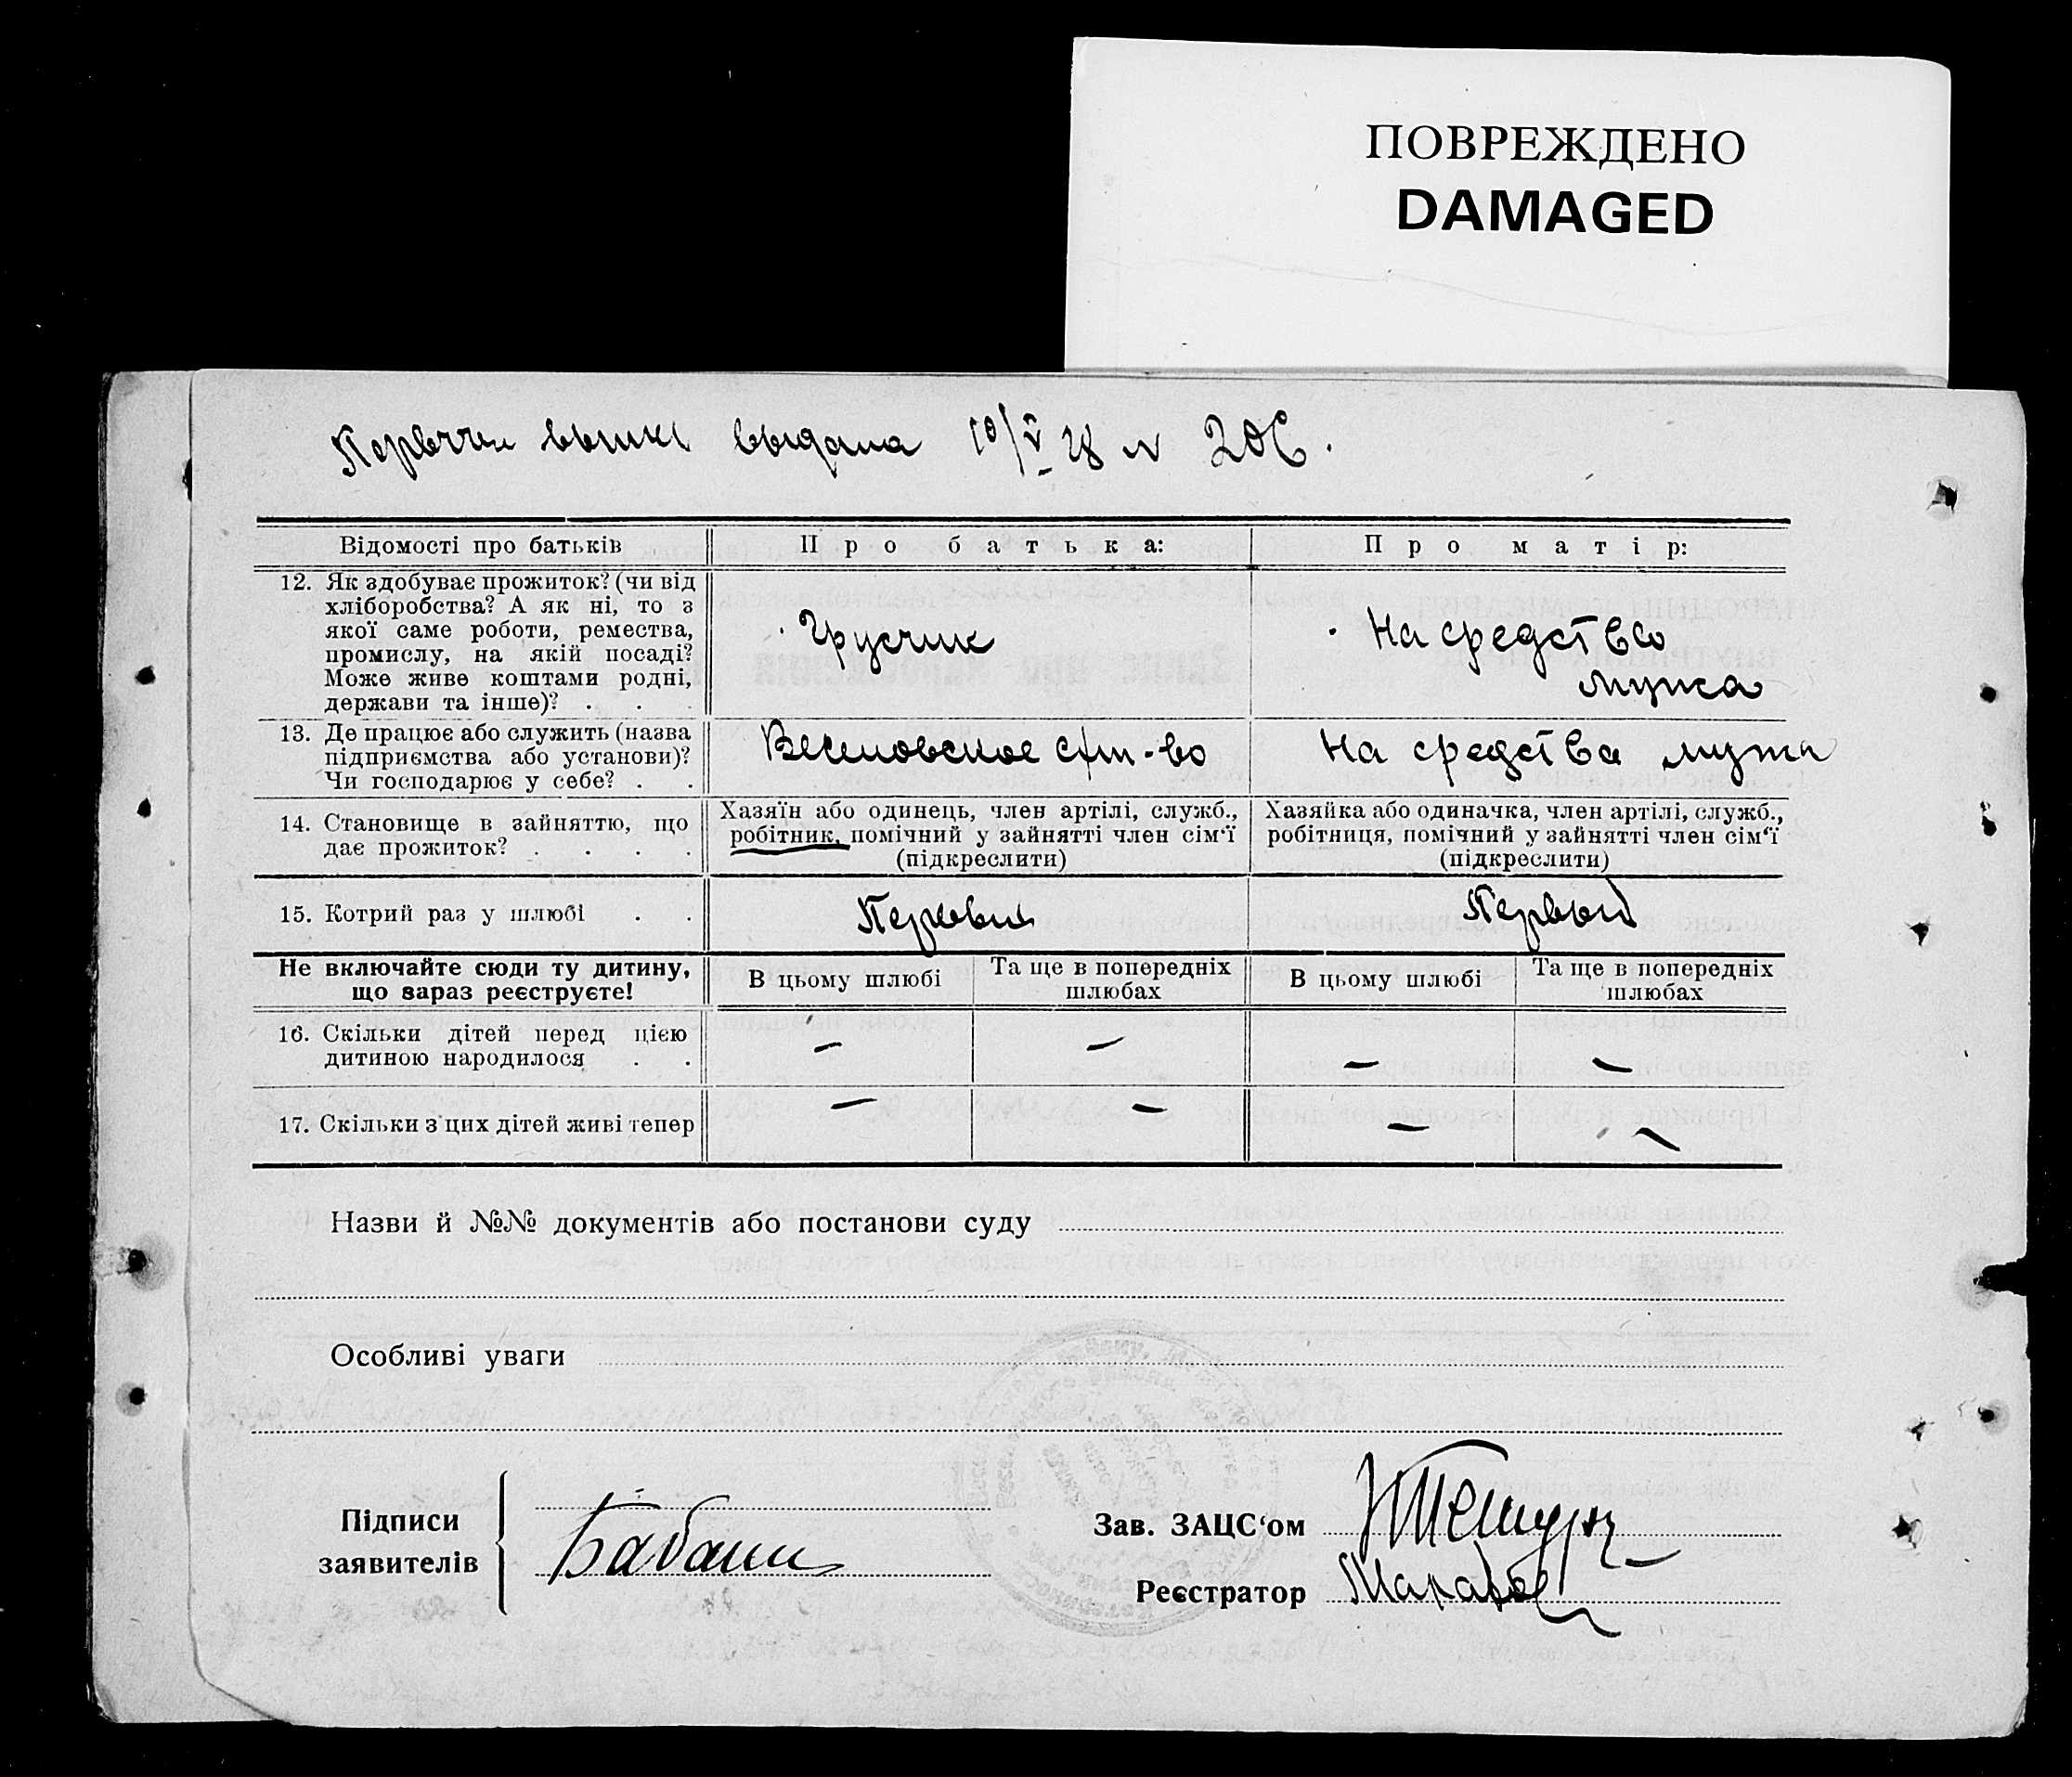 ПОВРЕЖДЕНО
DAMAGED
выдана 10/V 28 N 206.
Відомості про батьків
Про батька:
Про матір:
12. Як здобуває прожиток? (чи від
хліборобства? А як ні, то з
якої саме роботи, ремества,
промислу, на якій посаді?
Може живе коштами родні,
держави та інше)? . . .
Грузчик
На средство
мужа
13. Де працює або служить (назва
підприємства або установи)?
Чи господарює у себе? . .
На средства мужа
14. Становище в зайняттю, що
дає прожиток? . . . .
Хазяїн або одинець, член артілі, служб.,
робітник, помічний у зайнятті член сім'ї
(підкреслити)
Хазяйка або одиначка, член артілі, служб.,
робітниця, помічний у зайнятті член сім'ї
(підкреслити)
15. Котрий раз у шлюбі . .
Первый
Первый
Не включайте сюди ту дитину,
що зараз реєструєте!
В цьому шлюбі
Та ще в попередніх
шлюбах
В цьому шлюбі
Та ще в попередніх
шлюбах
16. Скільки дітей перед цією
дитиною народилося . .
— — — —
17. Скільки з цих дітей живі тепер
— — — —
Назви й №№ документів або постанови суду
Особливі уваги
Підписи
заявителів
Бабани
Зав. ЗАЦС'ом
Реєстратор